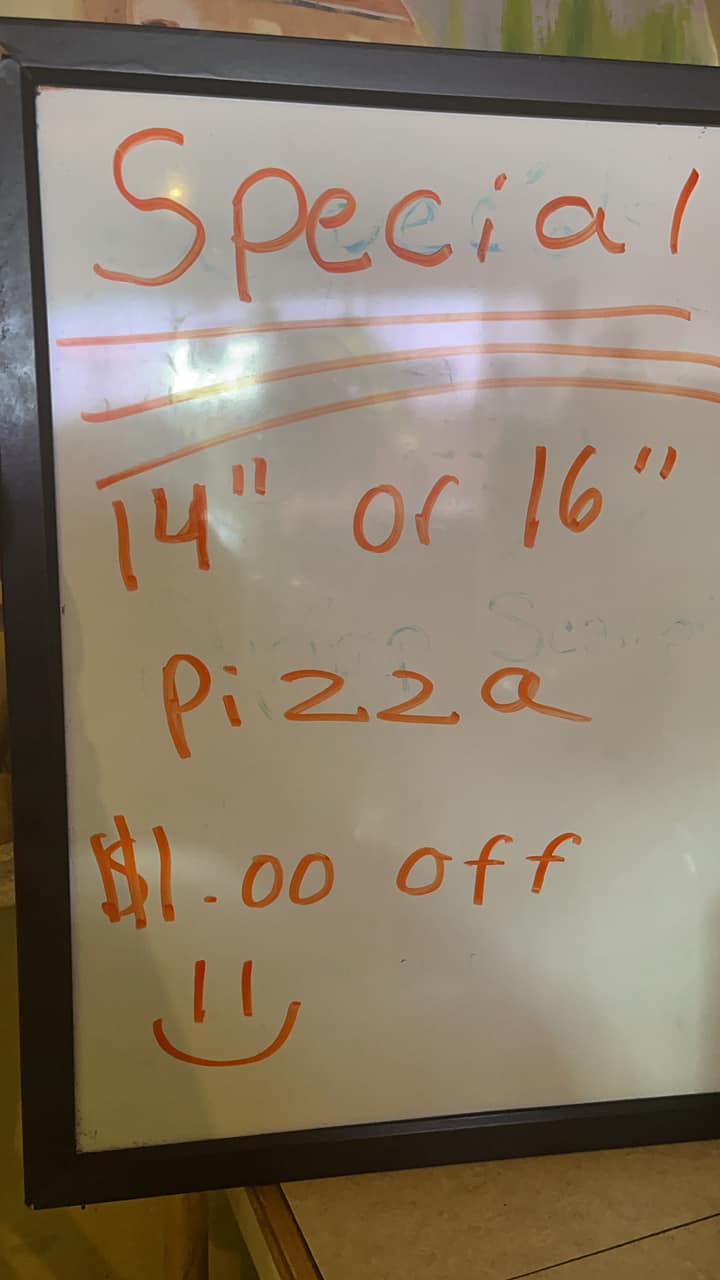 Special
14" or 16"
Pizza
$1.00 off